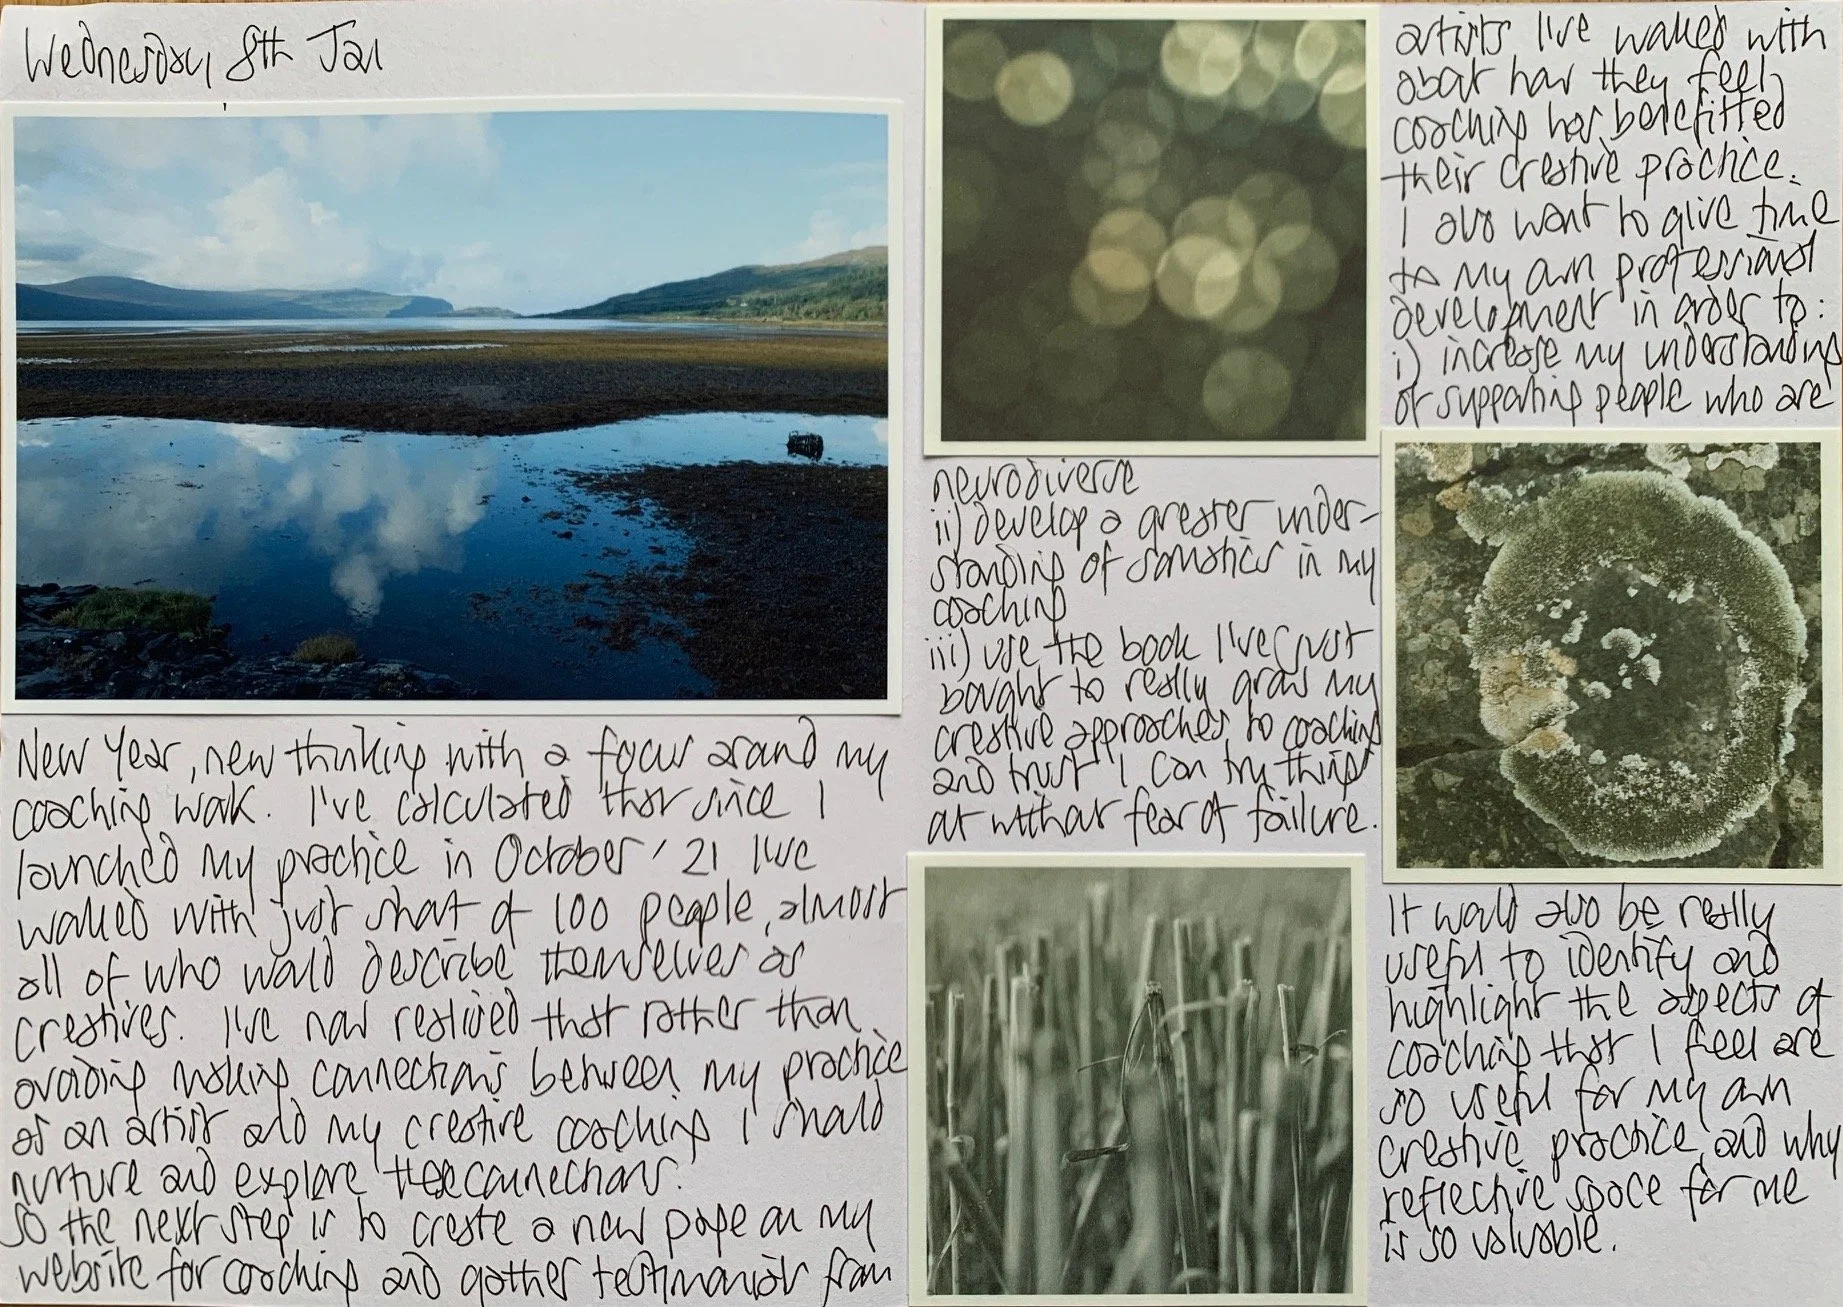 Wednesday 8th Jan
New Year, new thinking with a focus around my
coaching work. I've calculated that since I
launched my practice in October '21 I've
walked with just short of 100 people, almost
all of who would describe themselves as
creatives. I've now realised that rather than
avoiding making connections between my practice
as an artist and my creative coaching I should
nurture and explore these connections.
So the next step is to create a new page on my
website for coaching and gather testimonials from
artists I've walked with
about how they feel
coaching has benefitted
their creative practice.
I also want to give time
to my own professional
development in order to:
i) increase my understanding
of supporting people who are
neurodiverse
ii) develop a greater under-
standing of somatics in my
coaching
iii) use the book I've just
bought to really grow my
creative approaches to coaching
and trust I can try things
out without fear of failure.
It would also be really
useful to identify and
highlight the aspects of
coaching that I feel are
so useful for my own
creative practice, and why
reflective space for me
is so valuable.